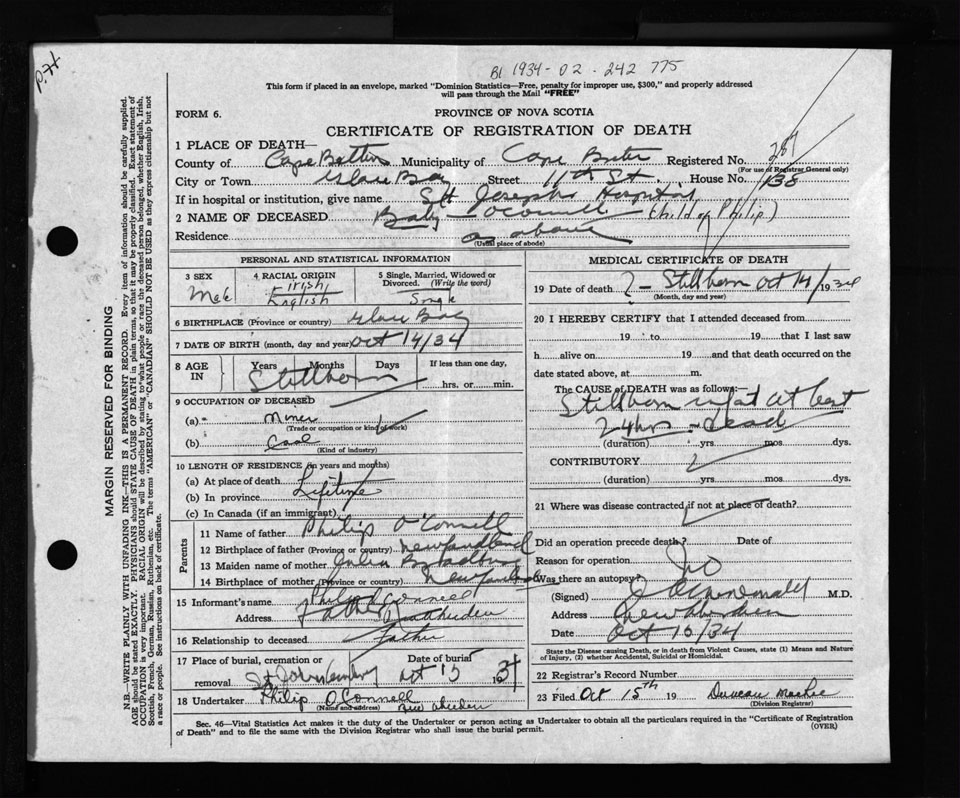 B1 1934-02-242 775
This form if placed in an envelope, marked "Dominion Statistics—Free, penalty for improper use, $300," and properly addressed
will pass through the Mail "FREE"
FORM 6.
PROVINCE OF NOVA SCOTIA
CERTIFICATE OF REGISTRATION OF DEATH
1 PLACE OF DEATH—
County of Cape Municipality of Cape Registered No.
(For use of Registrar General only)
City or Town Glace Bay Street 11th St. House No. 138
If in hospital or institution, give name St. Josephs Hospital
2 NAME OF DECEASED Baby O'Connell (child of Philip)
Residence as above
(Usual place of abode)
MARGIN RESERVED FOR BINDING
N.B.—WRITE PLAINLY WITH UNFADING INK—THIS IS A PERMANENT RECORD. Every item of information should be carefully supplied.
AGE should be stated EXACTLY. PHYSICIANS should STATE CAUSE OF DEATH in plain terms, so that it may be properly classified. Exact statement of
OCCUPATION is very important. RACIAL ORIGIN will be described by stating to what people or race the deceased person belonged, whether English, Irish,
Scottish, French, German, Russian, Ruthenian, etc. The terms "AMERICAN" or "CANADIAN" SHOULD NOT BE USED as they express citizenship but not
a race or people. See instructions on back of certificate.
PERSONAL AND STATISTICAL INFORMATION
3 SEX Male
4 RACIAL ORIGIN Irish English
5 Single, Married, Widowed or
Divorced. (Write the word)
Single
6 BIRTHPLACE (Province or country) Glace Bay
7 DATE OF BIRTH (month, day and year) Oct 14/34
8 AGE IN Years Months Days If less than one day,
Stillborn hrs. or min.
9 OCCUPATION OF DECEASED
(a) Miner
(Trade or occupation or kind of work)
(b) Coal
(Kind of industry)
10 LENGTH OF RESIDENCE (in years and months)
(a) At place of death
(b) In province Lifetime
(c) In Canada (if an immigrant)
Parents
11 Name of father Philip O'Connell
12 Birthplace of father (Province or country) Newfoundland
13 Maiden name of mother
14 Birthplace of mother (Province or country) Newfoundland
15 Informant's name Philip O'Connell
Address
16 Relationship to deceased Father
17 Place of burial, cremation or
removal Date of burial Oct 15 1934
18 Undertaker Philip O'Connell
(Name and address) New Aberdeen
MEDICAL CERTIFICATE OF DEATH
19 Date of death ? - Stillborn Oct 14/1934
(Month, day and year)
20 I HEREBY CERTIFY that I attended deceased from
19 to 19 that I last saw
h alive on 19 and that death occurred on the
date stated above, at m.
The CAUSE of DEATH was as follows:
Stillborn infant at best
24 hrs - dead
(duration) yrs mos dys.
CONTRIBUTORY ?
(duration) yrs mos dys.
21 Where was disease contracted if not at place of death?
Did an operation precede death? Date of
Reason for operation
Was there an autopsy? No
(Signed) M.D.
Address New Aberdeen
Date Oct 15/34
State the Disease causing Death, or in death from Violent Causes, state (1) Means and Nature
of Injury, (2) whether Accidental, Suicidal or Homicidal.
22 Registrar's Record Number
23 Filed Oct 15th 19 Duncan
(Division Registrar)
Sec. 46—Vital Statistics Act makes it the duty of the Undertaker or person acting as Undertaker to obtain all the particulars required in the "Certificate of Registration
of Death" and to file the same with the Division Registrar who shall issue the burial permit.
(OVER)